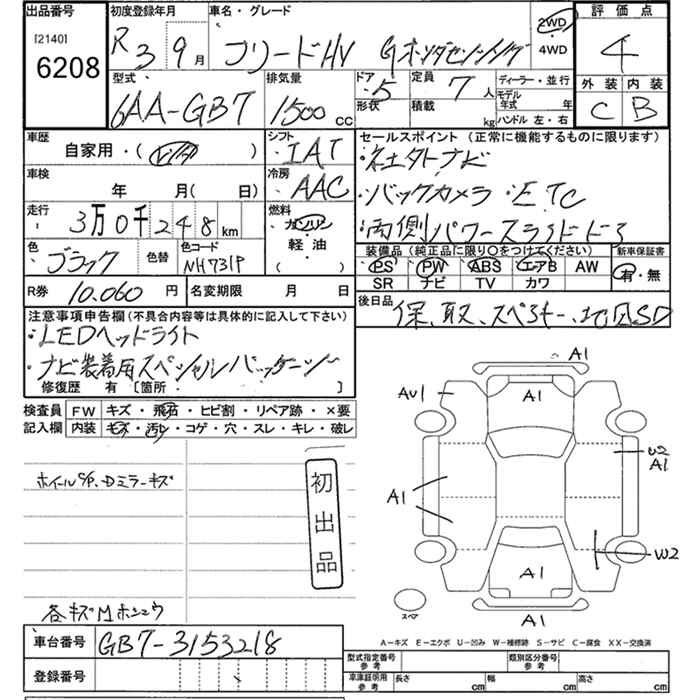 出品番号 初度登録年月 車名・グレード 評価点
[2140] 6208 R3 9月 フリードHV Gホンダセンシング 2WD・4WD 4
型式 排気量 ドア 定員 ディーラー・並行 外装 内装
6AA-GB7 1500cc 5 7人 モデル年式 年 C B
形状 積載 kg ハンドル 左・右
車歴 シフト セールスポイント(正常に機能するものに限ります)
自家用・( ) IAT ・社外ナビ
車検 冷房
年 月(日) AAC ・バックカメラ・ETC
走行 燃料
3万0千248km ガソリン ・両側パワースライドドア
軽油
( )
色 色替 色コード 装備品(純正品に限り○をつけてください) 新車保証書
ブラック NH731P PS PW ABS エアB AW 有・無
SR ナビ TV カワ
R券 10.060円 名変期限 月 日 後日品
保、取、スペアキー、SD
注意事項申告欄(不具合内容等は具体的に記入して下さい)
・LEDヘッドライト
・ナビ装着用スペシャルパッケージ
修復歴 有 [箇所・ ]
検査員 FW キズ・飛石・ヒビ割・リペア跡・×要
記入欄 内装 キズ・汚レ・コゲ・穴・スレ・キレ・破レ
ホイールC/P、Dミラーキズ
初出品
各キズM
A1
AU1
A1
U2
A1
A1
W2
A1
スペア
A1
A-キズ E-エクボ U-凹み W-補修跡 S-サビ C-腐食 XX-交換済
車台番号 GB7-3153218
型式指定番号 参考 類別区分番号 参考
登録番号
車庫証明用 参考 長さ cm 幅 cm 高さ cm